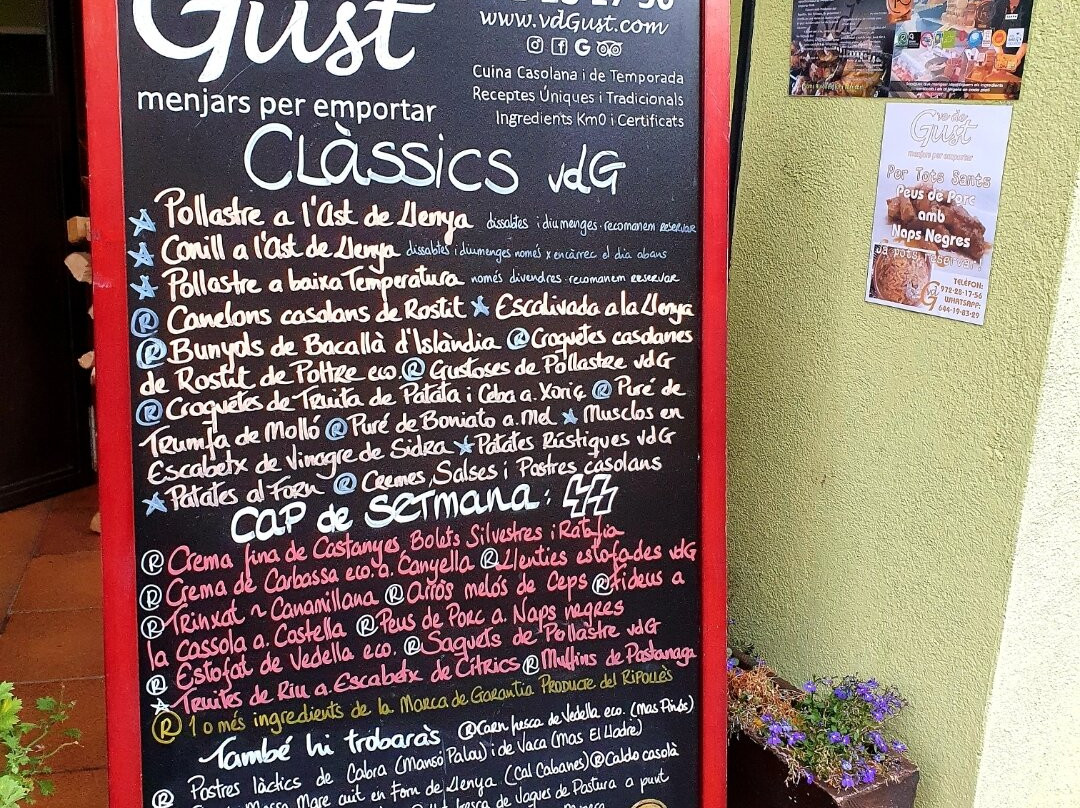 Gust
www.vdGust.com
menjars per emportar
Cuina Casolana i de Temporada
Receptes Úniques i Tradicionals
Ingredients Km0 i Certificats
CLÀSSICS vdG
Pollastre a l'Ast de Llenya dissabtes i diumenges. recomanem reservar
Conill a l'Ast de Llenya dissabtes i diumenges només x encàrrec el dia abans
Pollastre a baixa Temperatura només divendres. recomanem reservar
® Canelons casolans de Rostit ★ Escalivada a la Llenya
® Bunyols de Bacallà d'Islàndia ® Croquetes casolanes
de Rostit de Poltre eco. ® Gustoses de Pollastre vdG
® Croquetes de Truita de Patata i Ceba a. Xoriç ® Puré de
Trumfa de Molló ® Puré de Boniato a. Mel ★ Musclos en
Escabetx de Vinagre de Sidra ★ Patates Rústiques vdG
★ Patates al Forn ® Cremes, Salses i Postres casolans
CAP de SETMANA: 44
® Crema fina de Castanyes, Bolets Silvestres i Ratafia
® Crema de Carbassa eco. a. Canyella ® Llenties estofades vdG
® Trinxat ~ Canamillana ® Arròs melós de Ceps ® Fideus a
la cassola a. Costella ® Peus de Porc a. Naps negres
® Estofat de Vedella eco. ® Saquets de Pollastre vdG
★ Truites de Riu a. Escabetx de Cítrics ® Muffins de Pastanaga
® 1 o més ingredients de la Marca de Garantia Producte del Ripollès
També hi trobaràs ® Carn fresca de Vedella eco. (Mas Pinós)
® Postres làctics de Cabra (Mansó Palau) i de Vaca (Mas El Lladré)
Massa Mare cuit en Forn de Llenya (Cal Cabanes) ® Caldo casolà
fresca de Vaques de Pastura a punt
ve de
Gust
menjars per emportar
Per Tots Sants
Peus de Porc
amb
Naps Negres
Ja pots reservar!
TELÈFON:
972-20-17-56
WHATSAPP:
644-19-83-29